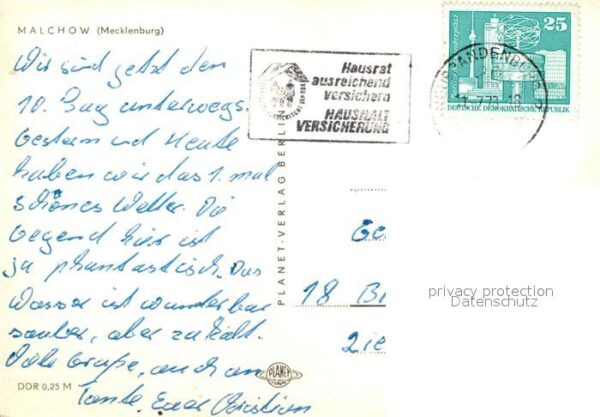 MALCHOW (Mecklenburg)
Wir sind jetzt den
10. Tag unterwegs.
Gestern und Heute
haben wir das 1. mal
schönes Wetter. Die
Gegend hier ist
ja phantastisch. Das
Wasser ist wunderbar
sauber, aber zu kalt.
Viele Grüße, auch an
Tante. Euer Christian
DDR 0,25 M
PLANET-VERLAG BERLIN
PLANET
Hausrat
ausreichend
versichern
HAUSHALT
VERSICHERUNG
25
DEUTSCHE DEMOKRATISCHE REPUBLIK
18
privacy protection
Datenschutz